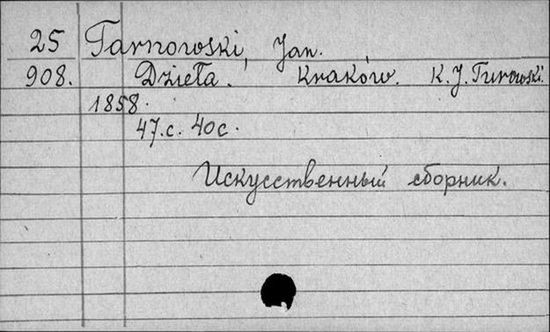 25 Tarnowski, Jan.
908. Dzieła. Kraków. K. J. Turowski.
1858.
47.c. 40c.
Искусственный сборник.